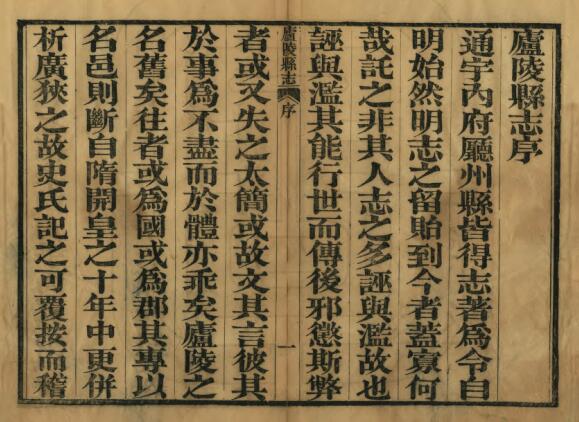 廬陵縣志序
通宇內府廳州縣皆得志著爲令自
明始然明志之留貽到今者蓋寡何
哉託之非其人志之多誣與濫故也
誣與濫其能行世而傳後邪懲斯弊
廬陵縣志 序 一
者或又失之太簡或故文其言彼其
於事爲不盡而於體亦乖矣廬陵之
名舊矣往者或爲國或爲郡其專以
名邑則斷自隋開皇之十年中更併
析廣狹之故史氏記之可覆按而稽